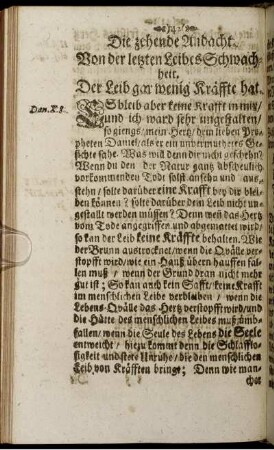 Die zehende Andacht.
Von der letzten Leibes Schwach-
heit.
Der Leib gar wenig Kräffte hat.
Dan. X. 8.
ES bleib aber keine Krafft in mir/
und ich ward sehr ungestalten/
so giengs/ mein Hertz/ dem lieben Pro-
pheten Daniel/ als er ein unvermuthetes Ge-
sichte sahe. Was wil denn dir nicht geschehn?
Wenn du den der Natur gantz abscheulich
vorkommenden Tode solst ansehn und aus-
stehn/ solte darüber eine Krafft bey dir blei-
ben können? solte darüber dein Leib nicht un-
gestalt werden müssen? Denn weñ das Hertz
vom Tode angegriffen und abgemattet wird/
so kan der Leib keine Kräffte behalten. Wie
der Brunn austrocknet/ wenn die Qvälle ver-
stopfft wird/ wie ein Hauß übern hauffen fal-
len muß/ wenn der Grund dran nicht mehr
gut ist; So kan auch kein Safft/ keine Krafft
im menschlichen Leibe verbleiben/ wenn die
Lebens-Qvälle das Hertz verstopfft wird/ und
die Hütte des menschlichen Leibes muß umb-
fallen/ wenn die Seule des Lebens die Seele
entweicht/ hiezu kommt denn die Schlafflo-
sigkeit und stete Unruhe/ die den menschlichen
Leib von Kräfften bringt; Denn wie man-
cher